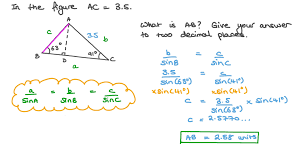 In the figure AC = 3.5.
What is AB? Give your answer
to two decimal places.
A
c
3.5
b
B
63°
41°
D
C
a
a/sinA = b/sinB = c/sinC
b/sinB = c/sinC
3.5/sin(63°) = c/sin(41°)
×sin(41°) ×sin(41°)
c = 3.5/sin(63°) × sin(41°)
c = 2.5770...
AB = 2.58 units